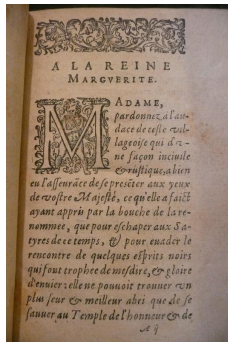 A LA REINE
MARGVERITE.
MADAME,
pardonnez à l'au-
dace de ceste vil-
lageoise qui d'v-
ne façon inciuile
& rustique, a bien
eu l'asseurāce de se presēter aux yeux
de vostre Majesté, ce qu'elle a faict
ayant appris par la bouche de la re-
nommee, que pour eschaper aux Sa-
tyres de ce temps, & pour euader le
rencontre de quelques esprits noirs
qui font trophee de mesdire, & gloire
d'enuier: elle ne pouuoit trouuer vn
plus seur & meilleur abri que de se
sauuer au Temple de l'honneur & de